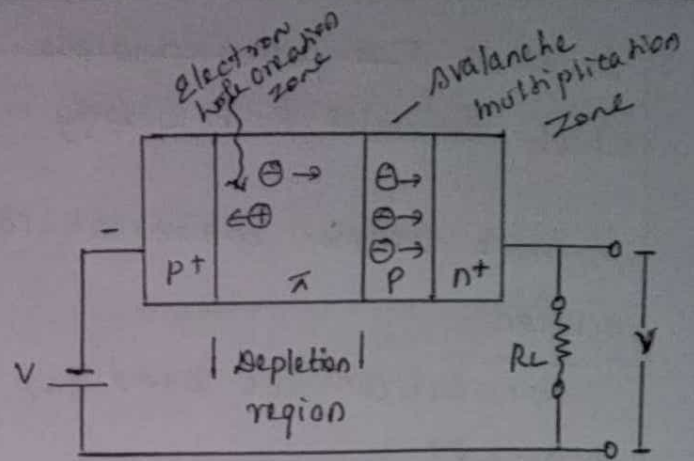 Electron
hole creation
zone
Avalanche
multiplication
zone
⊖→
←⊕
⊖→
⊖→
⊖→
-
p+
π
P
n+
V
| Depletion |
region
RL
V